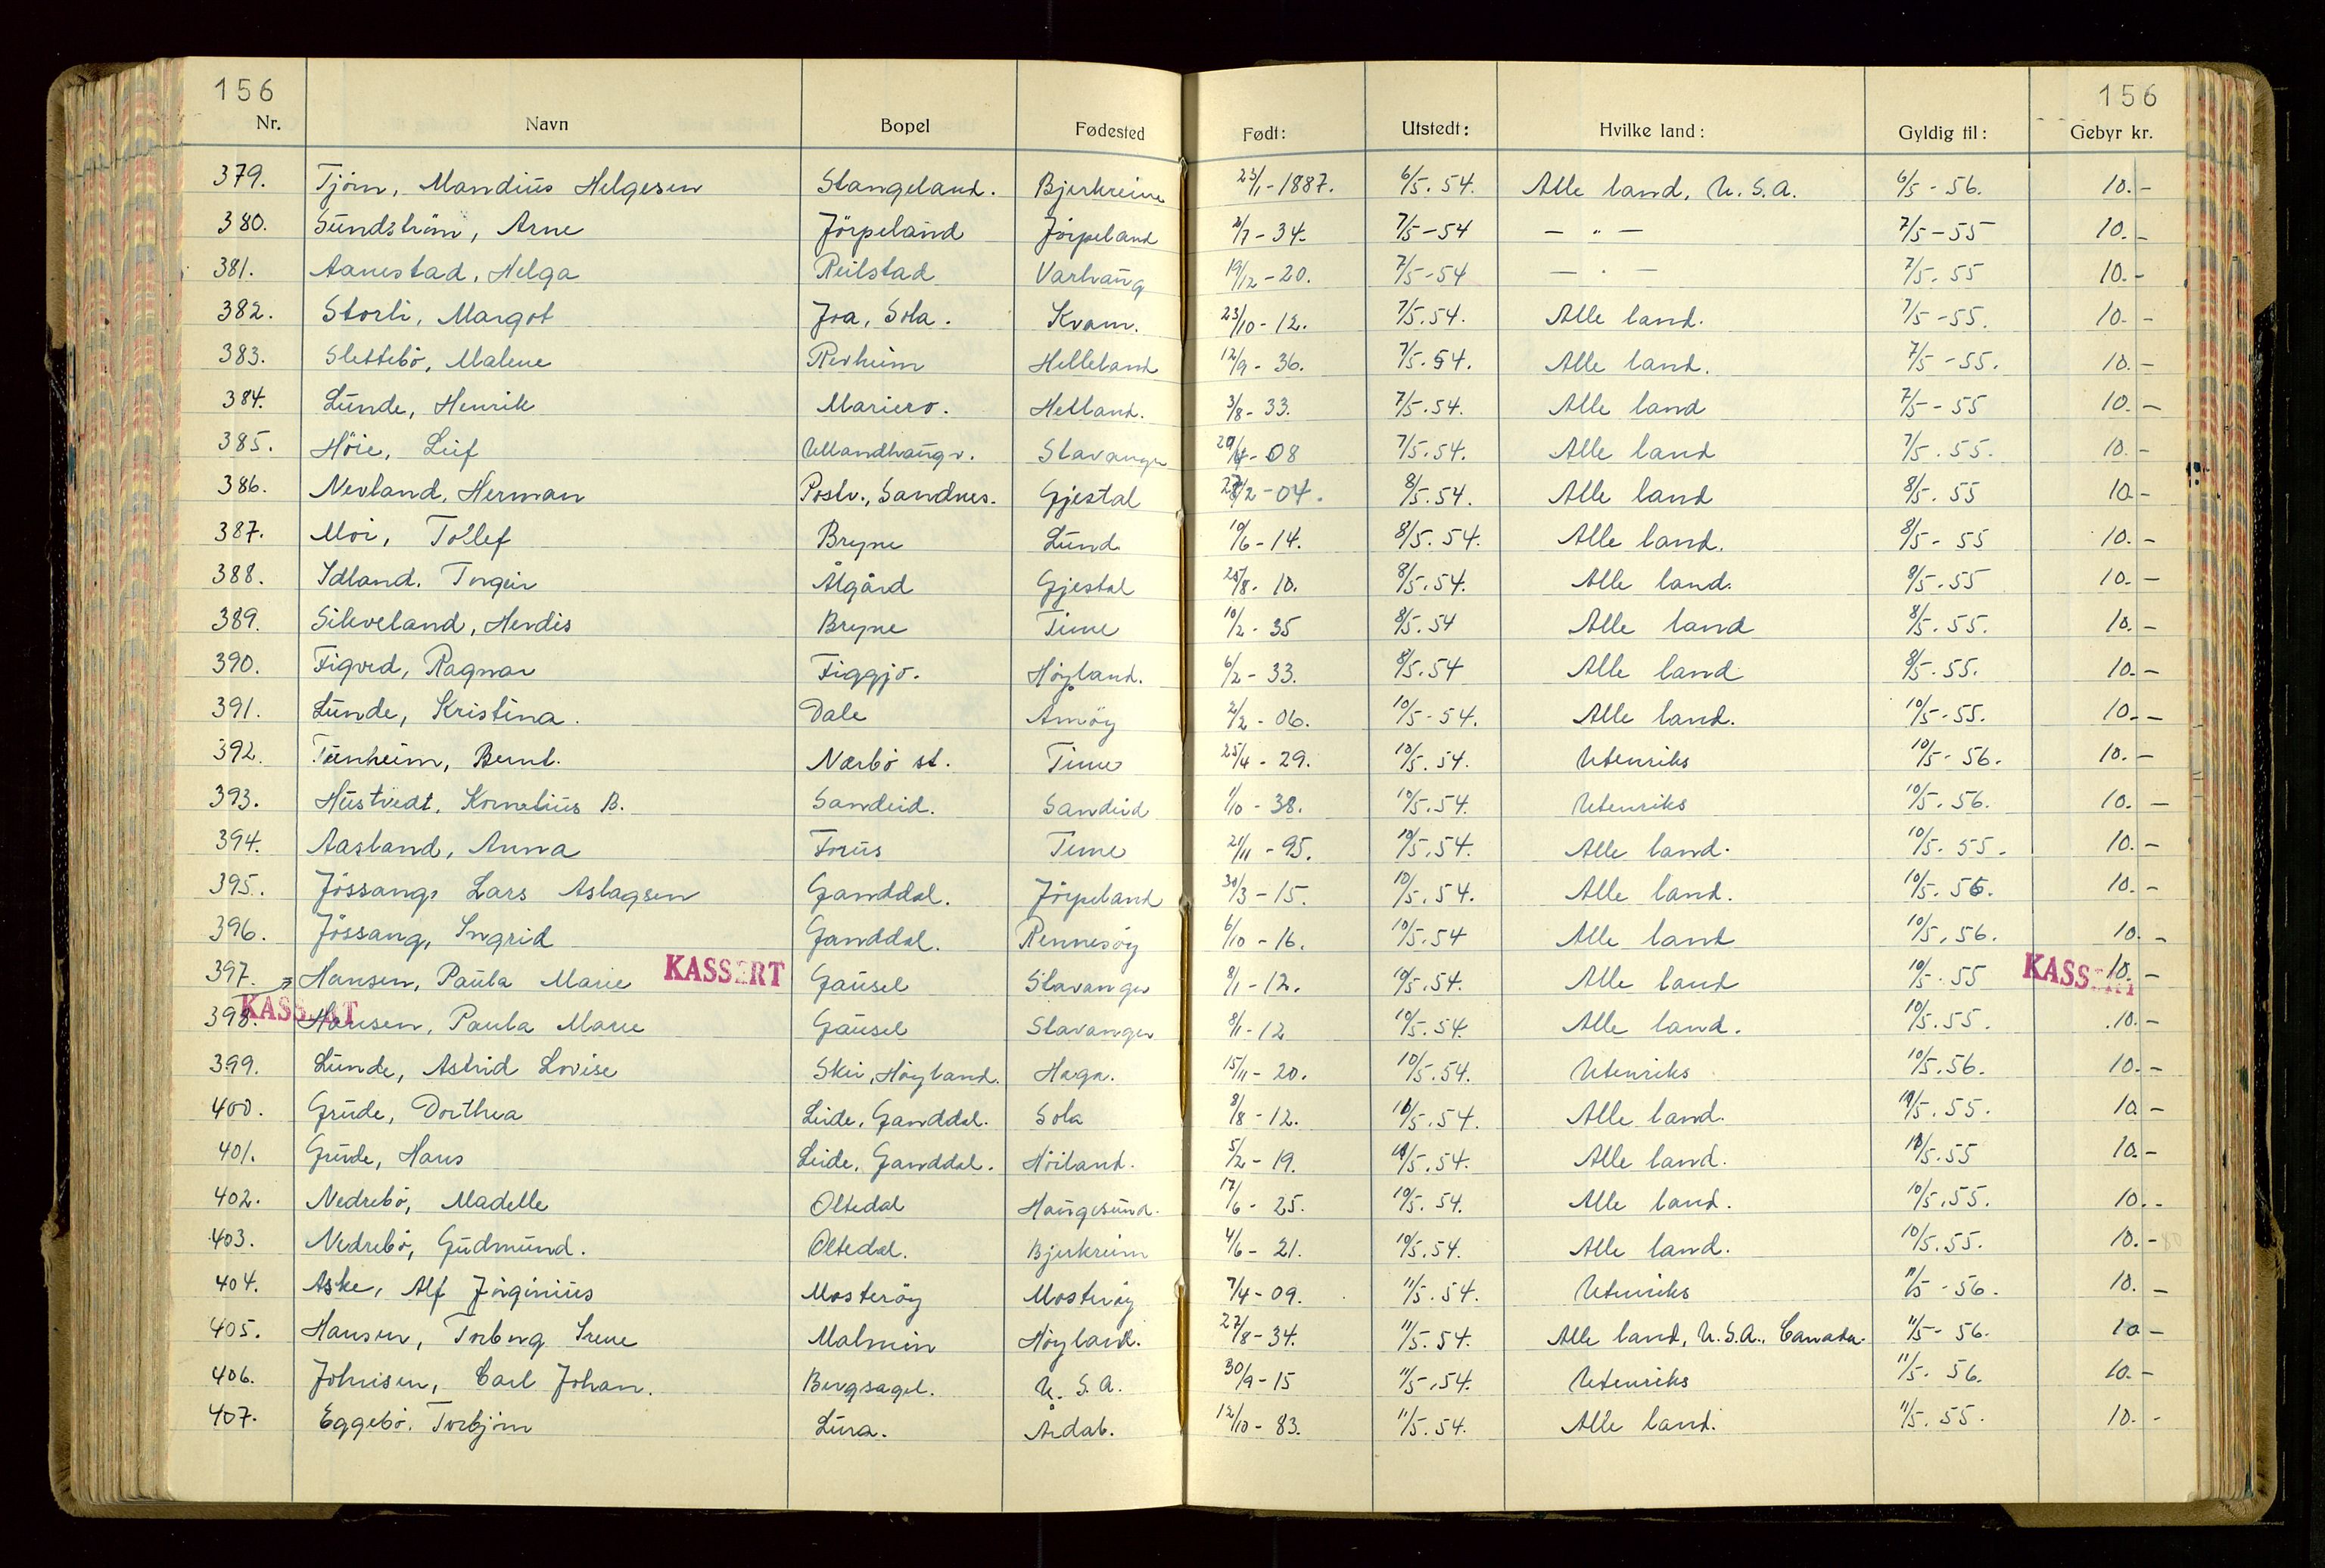 156 156
Nr. Navn Bopel Fødested Født: Utstedt: Hvilke land: Gyldig til: Gebyr kr.
379. Tjörn, Mandius Helgesen Stangeland. Bjerkreim 23/1-1887. 6/5.54. Alle land, U.S.A. 6/5-56. 10.-
380. Sundström, Arne Jörpeland Jörpeland 2/7-34. 7/5-54 — " — 7/5-55 10.-
381. Aanestad, Helga Reilstad Varhaug 19/12-20. 7/5-54 — " — 7/5.55 10.-
382. Storli, Margot Joa, Sola. Kvam. 23/10-12. 7/5.54. Alle land. 7/5-55. 10.-
383. Slettebö, Malene Revheim Helleland 12/9-36. 7/5.54. Alle land. 7/5-55. 10.-
384. Lunde, Henrik Mariero. Helland. 3/8-33. 7/5.54. Alle land 7/5-55 10.-
385. Höie, Leif Ullandhaugv. Stavanger /4-08 7/5.54. Alle land 7/5.55. 10.-
386. Nevland, Herman Postv., Sandnes. Gjestal 27/2-04. 8/5.54. Alle land 8/5.55 10.-
387. Moi, Tollef Bryne Lund 10/6-14. 8/5.54. Alle land. 8/5-55 10.-
388. Idland. Torgeir Ålgård Gjestal 25/8-10. 8/5.54. Alle land. 8/5.55 10.-
389. Sileveland, Herdis Bryne Time 10/2-35 8/5.54 Alle land 8/5.55. 10.-
390. Figved, Ragnar Figgjo. Höyland. 6/2-33. 8/5.54 Alle land 8/5.55. 10.-
391. Lunde, Kristina. Dale Åmöy 2/2-06. 10/5-54. Alle land. 10/5-55. 10.-
392. Tunheim, Bernt. Nærbö st. Time 25/4-29. 10/5.54. Utenriks 10/5-56. 10.-
393. Hustvedt, Kornelius B. Sandeid. Sandeid 1/10-38. 10/5.54. Utenriks 10/5.56. 10.-
394. Aasland, Anna Forus Time 21/11-95. 10/5.54. Alle land. 10/5.55. 10.-
395. Jössang, Lars Aslagsen Ganddal. Jörpeland 30/3-15. 10/5.54. Alle land. 10/5.56. 10.-
396. Jössang, Ingrid Ganddal. Rennesöy 6/10-16. 10/5.54 Alle land 10/5.56. 10.-
397. Hansen, Paula Marie KASSERT Gausel Stavanger 8/1-12. 10/5.54. Alle land 10/5.55 KASSERT 10.-
398. KASSERT Hansen, Paula Marie Gausel Stavanger 8/1-12 10/5.54. Alle land. 10/5.55. 10.-
399. Lunde, Astrid Lovise Skei, Höyland. Haga. 15/11-20. 10/5.54. Utenriks 10/5.56. 10.-
400. Grude, Dorthea Leide, Ganddal. Sola 8/8-12. 10/5.54. Alle land. 10/5.55. 10.-
401. Grude, Hans Leide, Ganddal. Höiland. 5/2-19. 10/5.54. Alle land. 10/5.55 10.-
402. Nedrebö, Madelle Oltedal Haugesund. 17/6-25. 10/5.54. Alle land. 10/5.55. 10.-
403. Nedrebö, Gudmund. Oltedal. Bjerkreim 4/6-21. 10/5.54. Alle land. 10/5.55. 10.-
404. Aske, Alf Jörginius Mosteröy Mosteröy 7/4-09. 11/5.54. Utenriks 11/5-56. 10.-
405. Hansen, Torborg Irene Malmin Höyland. 27/8-34. 11/5.54. Alle land, U.S.A., Canada. 11/5-56. 10-
406. Johnisen, Carl Johan. Bergsagel. U.S.A. 30/9-15 11/5.54. Utenriks 11/5.56. 10.-
407. Eggebö. Torbjörn Lura. Årdal. 12/10-83. 11/5.54. Alle land. 11/5.55. 10.-